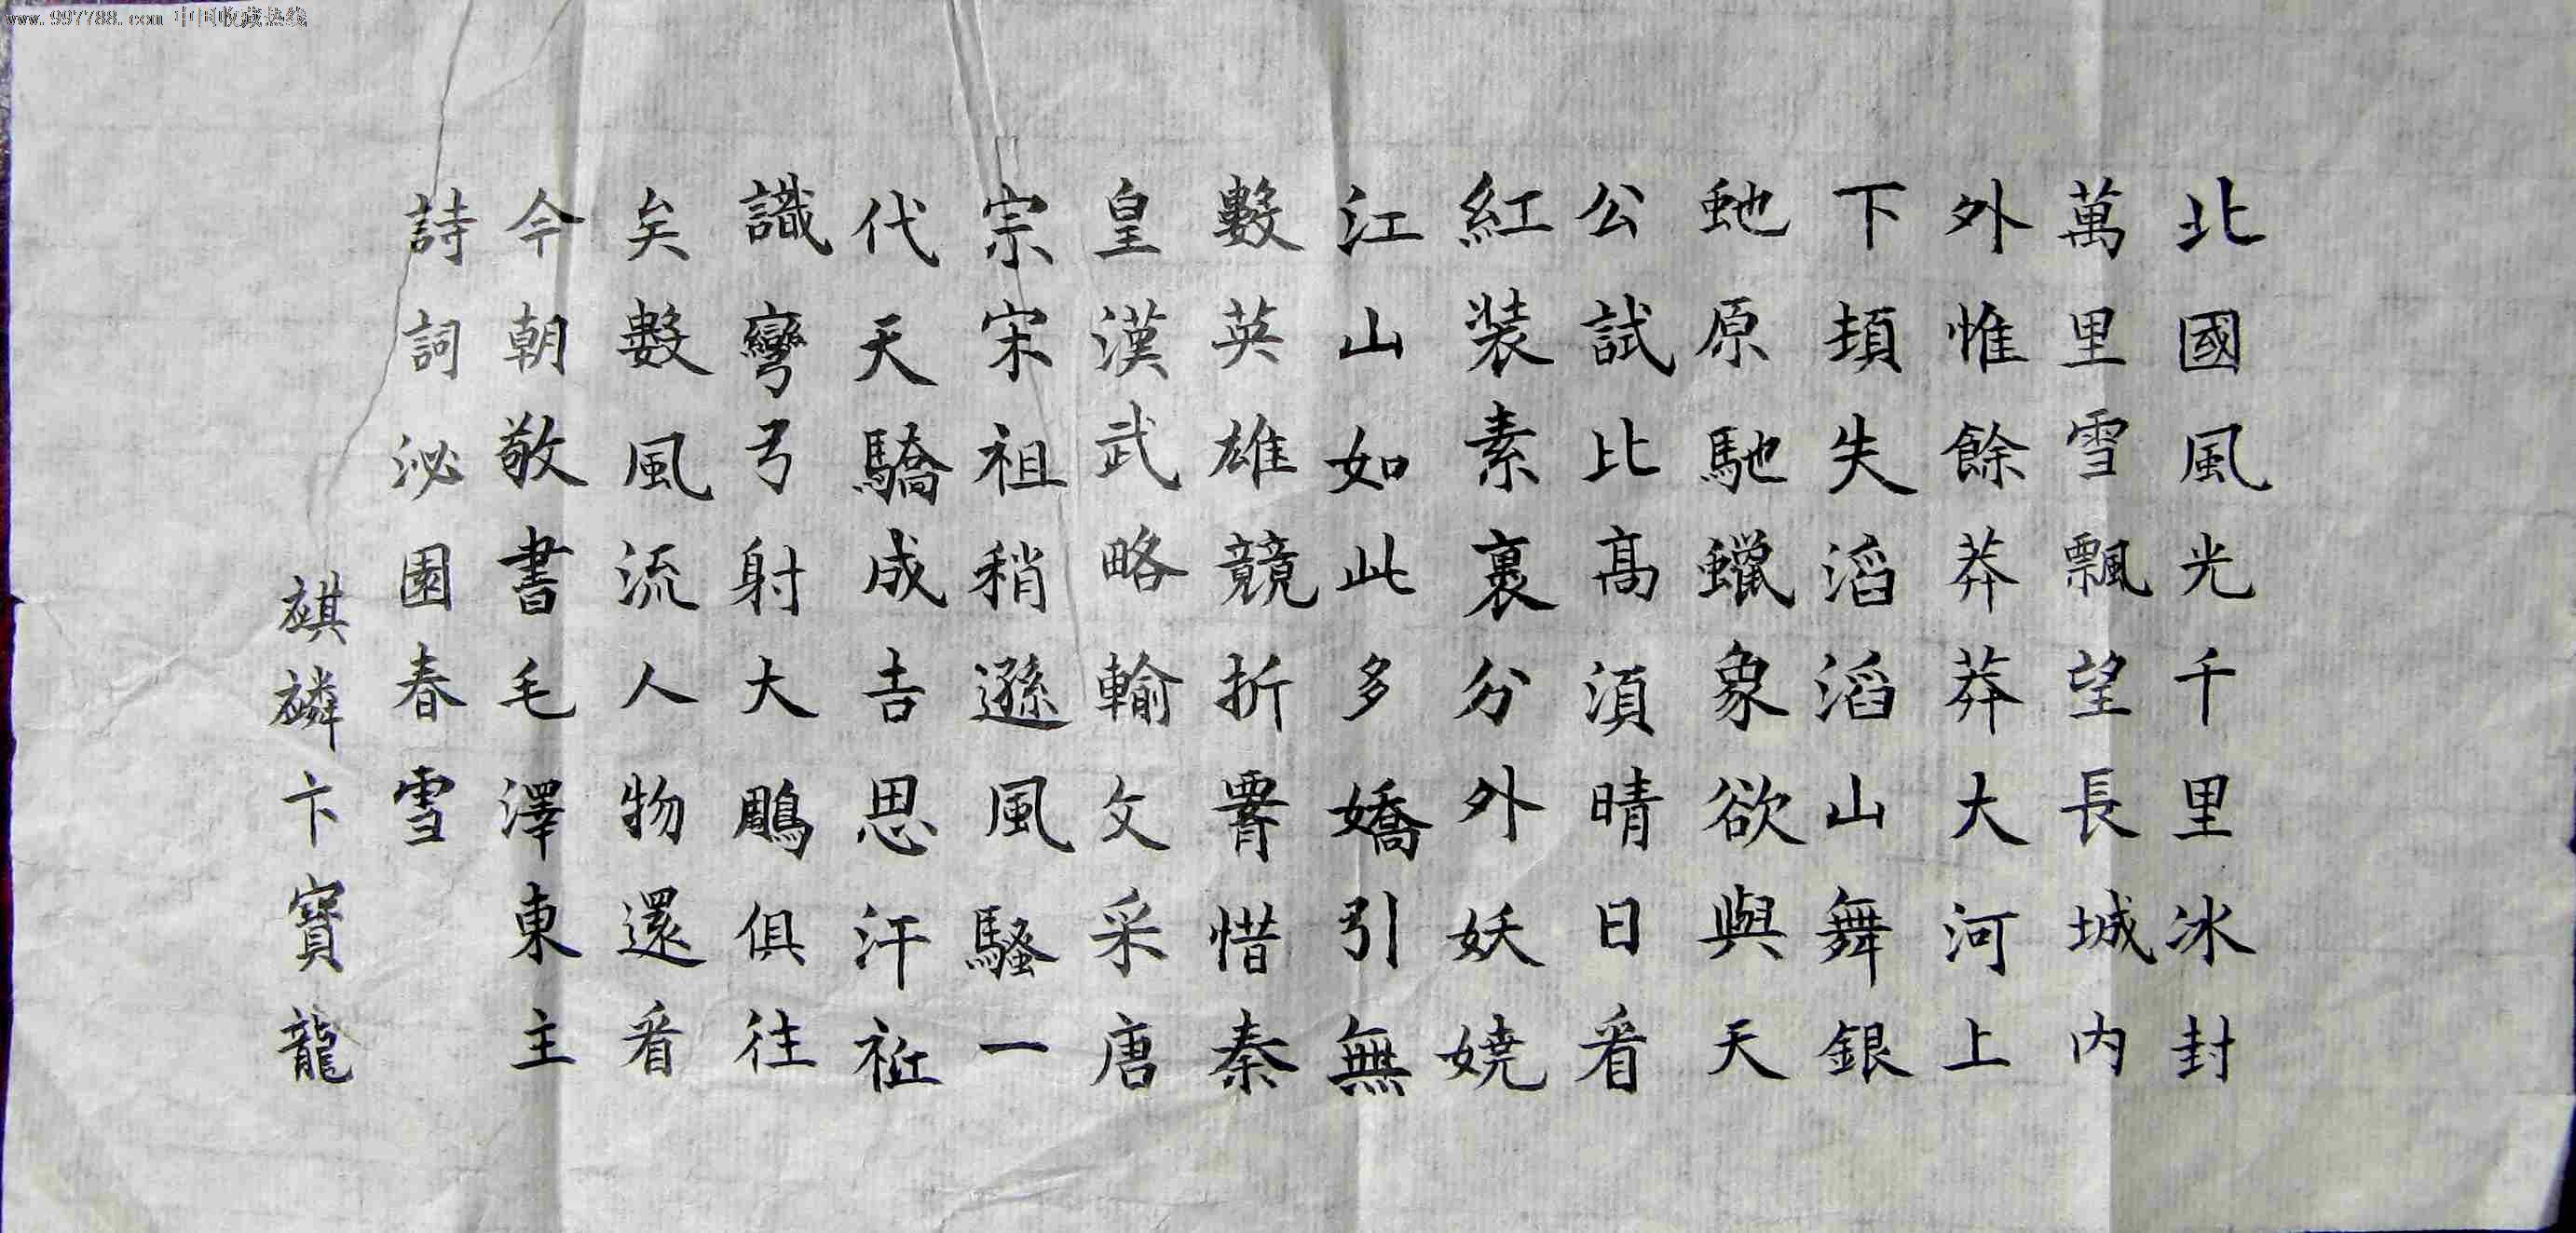 www.997788.com 中国收藏热线
北國風光千里冰封
萬里雪飄望長城内
外惟餘莽莽大河上
下頓失滔滔山舞銀
虵原馳蠟象欲與天
公試比高須晴日看
紅装素裹分外妖嬈
江山如此多嬌引無
數英雄競折腰惜秦
皇漢武略輸文采唐
宗宋祖稍遜風騷一
代天驕成吉思汗袛
識彎弓射大鵰俱往
矣數風流人物還看
今朝敬書毛澤東主
詩詞泌園春雪
禥禷卞寳龍